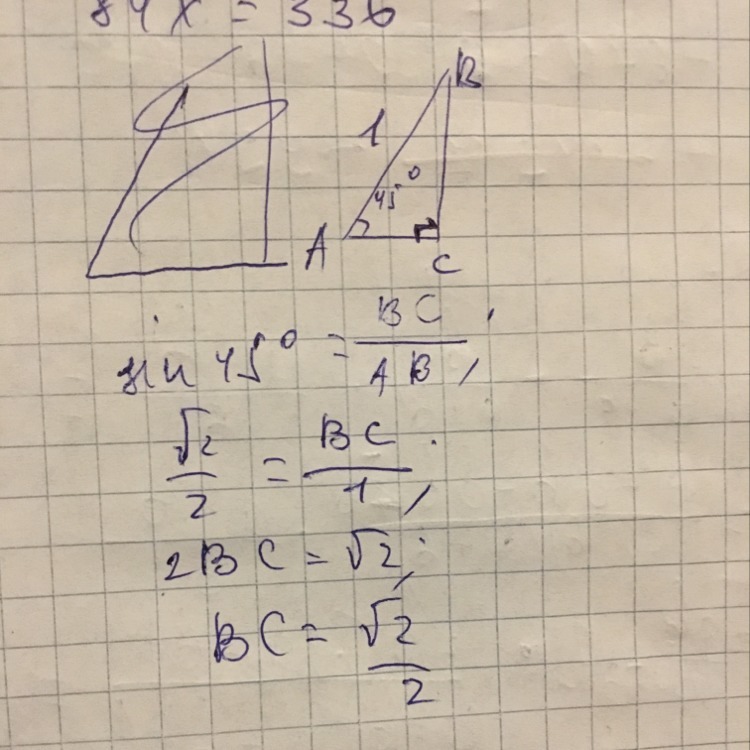 84x = 336
B
1
45°
A
C
sin 45° = BC / AB ;
√2 / 2 = BC / 1 ;
2BC = √2 ;
BC = √2 / 2